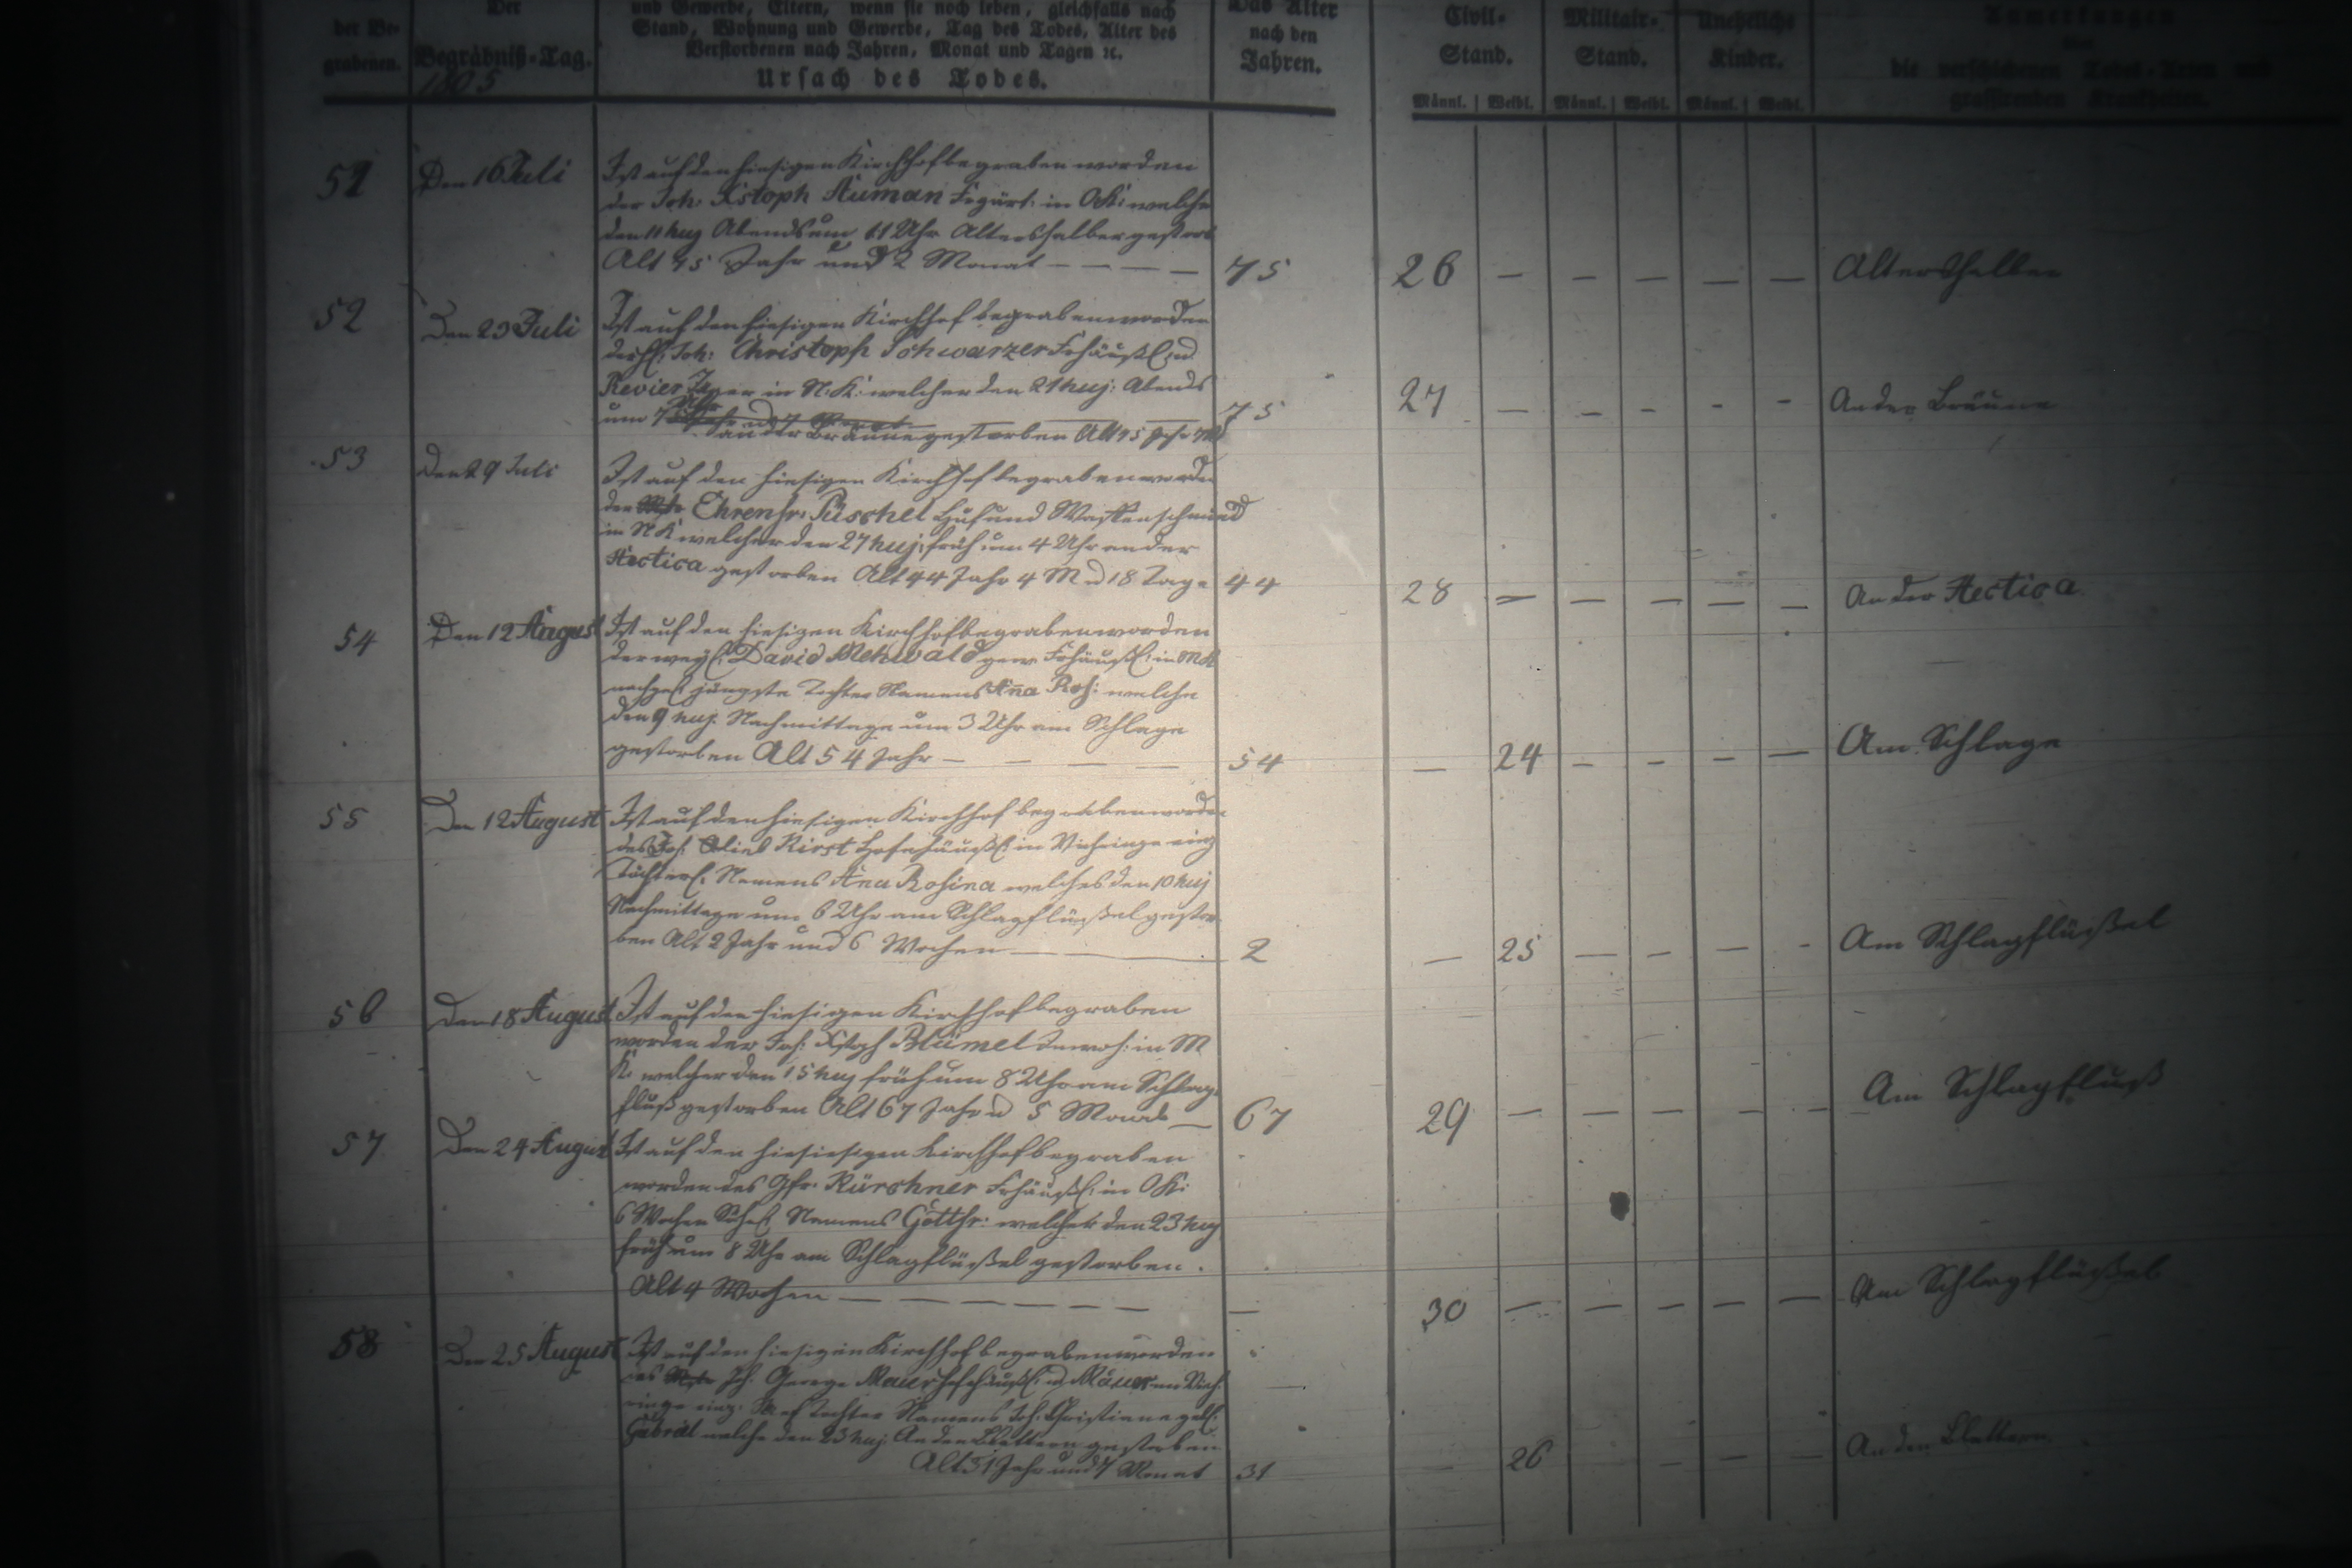 der Be-
grabenen.
Der
Begräbniß-Tag.
1805
und Gewerbe, Eltern, wenn sie noch leben, gleichfalls nach
Stand, Wohnung und Gewerbe, Tag des Todes, Alter des
Verstorbenen nach Jahren, Monat und Tagen ꝛc.
Ursach des Todes.
Das Alter
nach den
Jahren.
Civil-
Stand.
Militair-
Stand.
Uneheliche
Kinder.
Anmerkungen
die verschiedenen Todes-Arten und
grassirenden Krankheiten.
Männl. Weibl. Männl. Weibl. Männl. Weibl.
51 Den 16 Juli Ist auf den hiesigen Kirchhof begraben worden
der Joh: Xstoph Auman in OK: welcher
den 11 huj Abends um 11 Uhr Altershalber gestorb
Alt 75 Jahr und 2 Monat — — — — 75 26 — — — — — Altershalber
52 Den 23 Juli Ist auf den hiesigen Kirchhof begraben worden
der Joh: Christoph Schwarzer Frhäußl: u
Revier Jäger in N: K: welcher den 21 huj: Abends
um 7 Uhr 75 27 — — — — — An der Bräune
an der Bräune gestorben Alt 75
53 Den 29 Juli Ist auf den hiesigen Kirchhof begraben worden
der Ehrenfr: Püschel Huf und Waffenschmied
in N K welcher den 27 huj: früh um 4 Uhr an der
Hectica gestorben Alt 44 Jahr 4 M u 18 Tage 44 28 — — — — — An der Hectica
54 Den 12 August Ist auf den hiesigen Kirchhof begraben worden
der weyl: David Mehwald gew Frhäußl: in MK
nachgel jüngste Tochter Namens Aña Ros: welche
den 9 huj. Nachmittage um 3 Uhr am Schlage
gestorben Alt 54 Jahr — — — — 54 — 24 — — — — Am Schlage
55 Den 12 August Ist auf den hiesigen Kirchhof begraben worden
des Kirst Hofehäußl: in Viehringe einz
Töchterl: Namens Ana Rosina welches den 10 huj
Nachmittage um 6 Uhr am Schlagflüßel gestor-
ben Alt 2 Jahr und 6 Wochen — — 2 — 25 — — — - Am Schlagflüßel
56 Den 18 August Ist auf den hiesigen Kirchhof begraben
worden der Joh: Xstoph Blümel Inwoh: in M
K: welcher den 15 huj früh um 8 Uhr am Schlag-
fluß gestorben Alt 67 Jahr u 5 Monat — 67 29 — — — — — Am Schlagfluß
57 Den 24 August Ist auf den hiesiesigen Kirchhof begraben
worden des Gfr: Kürschner Frhäußl: in OK:
6 Wochen Söhnl Namens Gottfr: welcher den 23 huj
früh um 8 Uhr am Schlagflüßel gestorben.
Alt 4 Wochen — — — — — — — 30 — — — — — Am Schlagflüßel
58 Den 25 August Ist auf den hiesigen Kirchhof begraben worden
des Joh: George Mauer Hofehäußl: u Maurer in Vieh-
ringe einz: Tochter Namens Joh: Christiane
Gabriel welche den 23 huj. An den Blattern gestorben
Alt 31 Jahr und 7 Monat 31 — 26 — — — An den Blattern